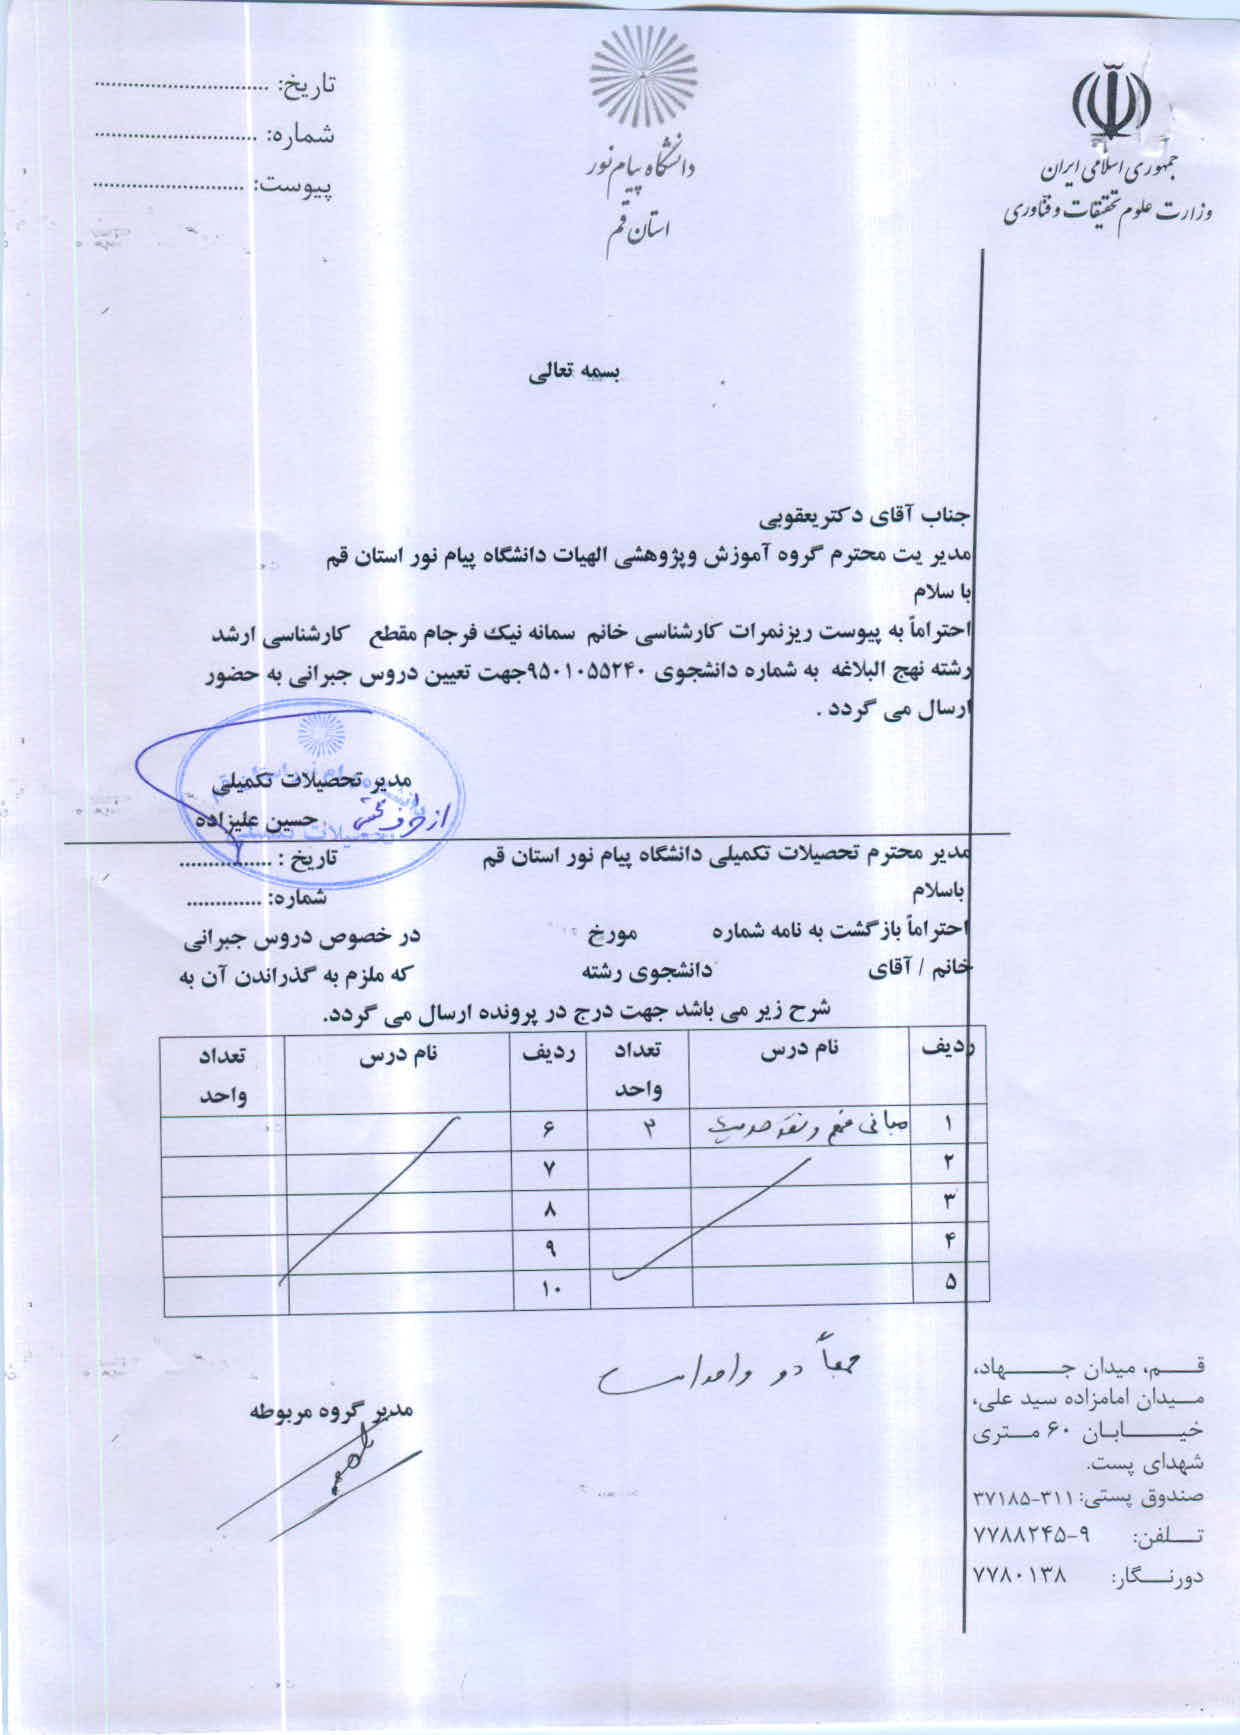 جمهوری اسلامی ایران
وزارت علوم تحقیقات و فناوری
دانشگاه پیام نور
استان قم
تاریخ: ..............................
شماره: ............................
پیوست: ..........................
بسمه تعالی
جناب آقای دکتریعقوبی
مدیر یت محترم گروه آموزش وپژوهشی الهیات دانشگاه پیام نور استان قم
با سلام
احتراماً به پیوست ریزنمرات کارشناسی خانم سمانه نیک فرجام مقطع کارشناسی ارشد
رشته نهج البلاغه به شماره دانشجوی ۹۵۰۱۰۵۵۲۴۰جهت تعیین دروس جبرانی به حضور
ارسال می گردد .
مدیر تحصیلات تکمیلی
حسین علیزاده از طرف
تحصیلات تکمیلی
مدیر محترم تحصیلات تکمیلی دانشگاه پیام نور استان قم تاریخ : ................
باسلام
شماره: .............
احتراماً بازگشت به نامه شماره مورخ در خصوص دروس جبرانی
خانم / آقای دانشجوی رشته که ملزم به گذراندن آن به
شرح زیر می باشد جهت درج در پرونده ارسال می گردد.
ردیف نام درس تعداد واحد ردیف نام درس تعداد واحد
۱ مبانی فهم و نقد حدیث ۲ ۶
۲ ۷
۳ ۸
۴ ۹
۵ ۱۰
جمعاً دو واحد است
مدیر گروه مربوطه
قم، میدان جهاد،
میدان امامزاده سید علی،
خیابان ۶۰ متری
شهدای پست.
صندوق پستی: ۳۷۱۸۵-۳۱۱
تلفن: ۷۷۸۸۲۴۵-۹
دورنگار: ۷۷۸۰۱۳۸